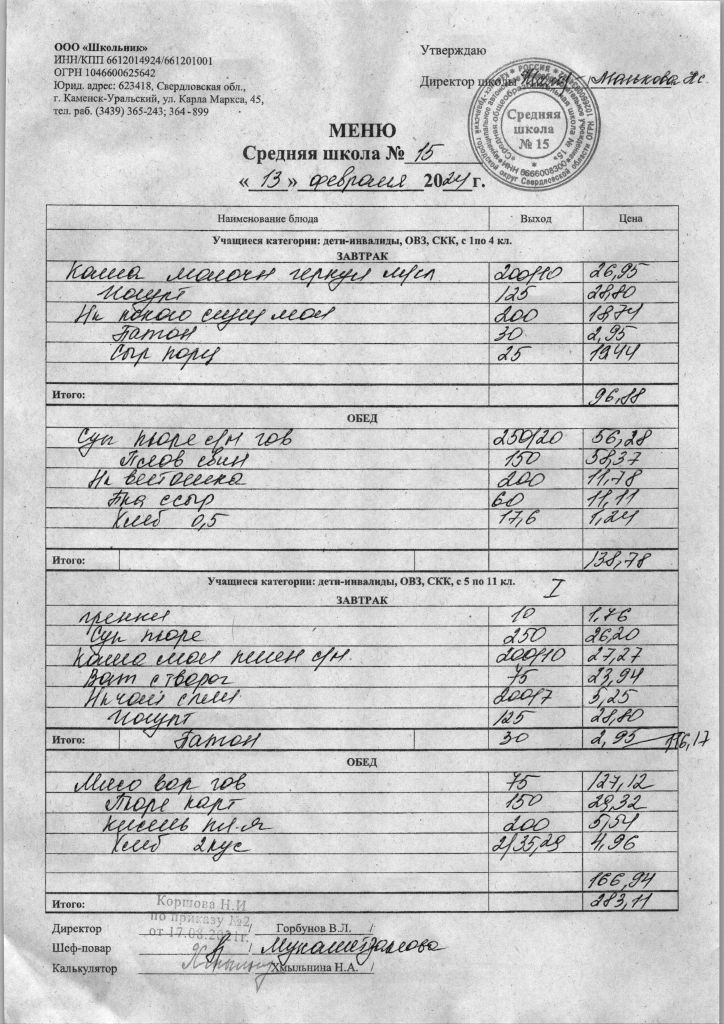 ООО «Школьник»
ИНН/КПП 6612014924/661201001
ОГРН 1046600625642
Юрид. адрес: 623418, Свердловская обл.,
г. Каменск-Уральский, ул. Карла Маркса, 45,
тел. раб. (3439) 365-243; 364 - 899
Утверждаю
Директор школы
Средняя
школа
№ 15
МЕНЮ
Средняя школа № 15
« 13 » февраля 2024 г.
Наименование блюда Выход Цена
Учащиеся категории: дети-инвалиды, ОВЗ, СКК, с 1по 4 кл.
ЗАВТРАК
Каша молочн геркул м/сл 200/10 26,95
Йогурт 125 28,80
Н-к какао сгущ мол 200 18,74
Батон 30 2,95
Сыр порц 25 1944
Итого: 96,88
ОБЕД
Суп пюре с/н гов 250/20 56,28
Плов свин 150 58,37
Н-к витошка 200 11,78
сыр 60 11,11
Хлеб 0,5 17,6 1,24
Итого: 138,78
Учащиеся категории: дети-инвалиды, ОВЗ, СКК, с 5 по 11 кл. I
ЗАВТРАК
гренки 10 1,76
Суп пюре 250 26,20
Каша мол пшен с/м 200/10 27,27
Ват с творог 75 23,94
Н-к чай слим 200/7 5,25
Йогурт 125 28,80
Итого: Батон 30 2,95 116,17
ОБЕД
Мясо вар гов 75 127,12
Пюре карт 150 29,32
кисель пл-я 200 5,54
Хлеб 2 кус 2/35,29 4,96
166,94
Итого: 283,11
Коршова Н.И
по приказу №2
от 17.08.2021г.
Директор / Горбунов В.Л. /
Шеф-повар /
Калькулятор / Хмыльнина Н.А. /